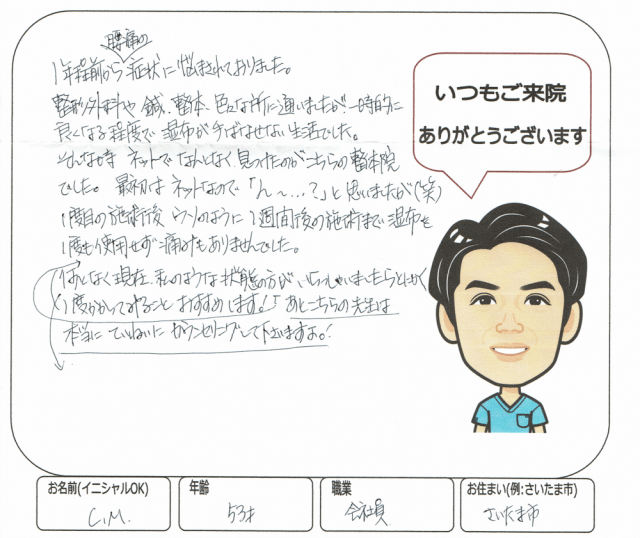 腰痛の
1年程前から症状に悩まされておりました。
整形外科や鍼、整体、色んな所に通いましたが一時的に
良くなる程度で湿布が手ばなせない生活でした。
そんな時ネットでなんとなく見つけたのがこちらの整体院
でした。最初はネットなので「ん～…?」と思いましたが(笑)
1度目の施術後ウソのように1週間後の施術まで湿布を
1度も使用せず痛みもありませんでした。
なんとなく現在、私のような状態の方がいらっしゃいましたらとにかく
1度かかってみることおすすめします!!あとこちらの先生は
本当にていねいにカウンセリングして下さいますよ。!
いつもご来院
ありがとうございます
お名前(イニシャルOK)
C.M.
年齢
53才
職業
会社員
お住まい(例:さいたま市)
さいたま市